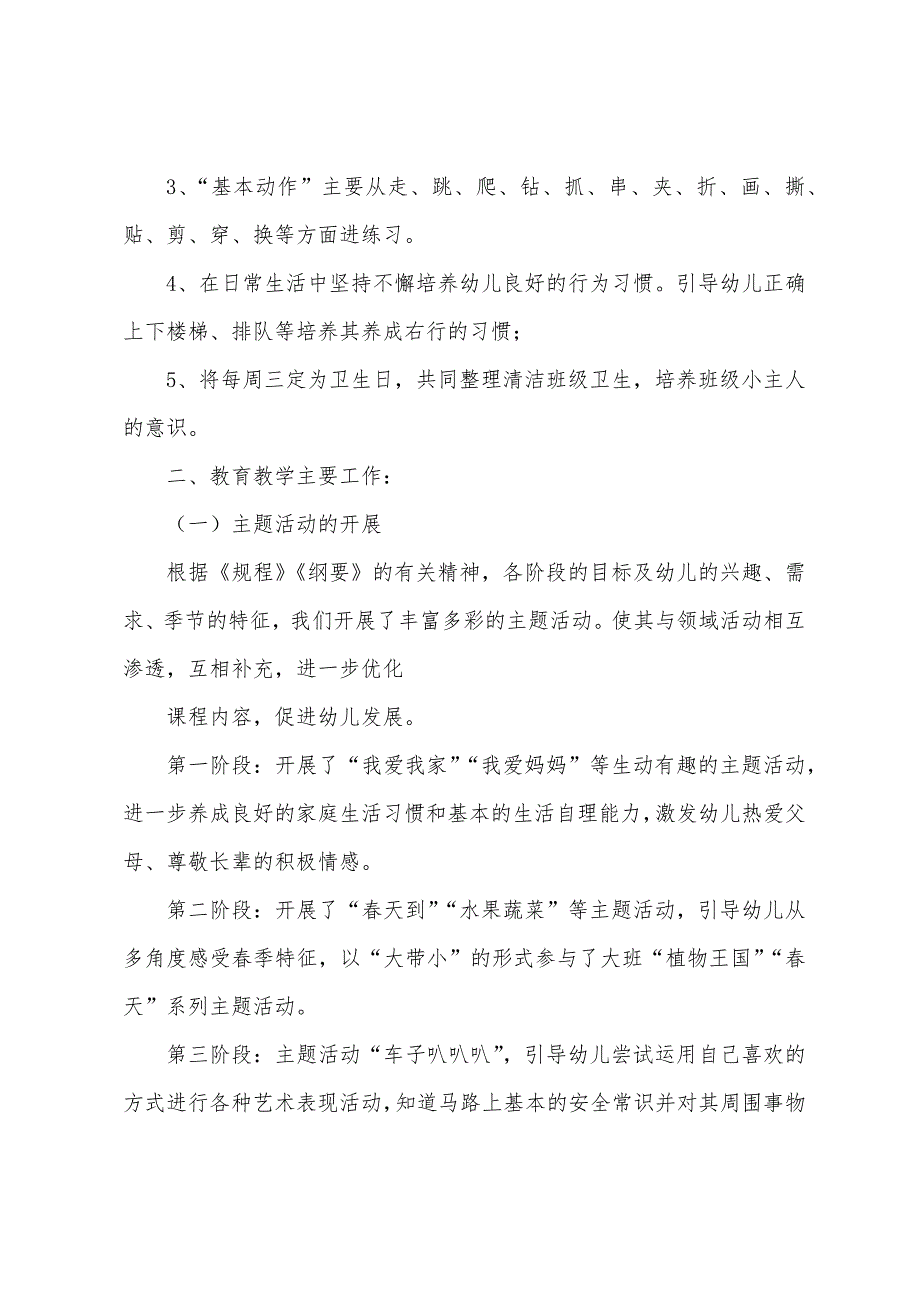 3、“基本动作”主要从走、跳、爬、钻、抓、串、夹、折、画、撕、
贴、剪、穿、换等方面进练习。
4、在日常生活中坚持不懈培养幼儿良好的行为习惯。引导幼儿正确
上下楼梯、排队等培养其养成右行的习惯；
5、将每周三定为卫生日，共同整理清洁班级卫生，培养班级小主人
的意识。
二、教育教学主要工作：
（一）主题活动的开展
根据《规程》《纲要》的有关精神，各阶段的目标及幼儿的兴趣、需
求、季节的特征，我们开展了丰富多彩的主题活动。使其与领域活动相互
渗透，互相补充，进一步优化
课程内容，促进幼儿发展。
第一阶段：开展了“我爱我家”“我爱妈妈”等生动有趣的主题活动，
进一步养成良好的家庭生活习惯和基本的生活自理能力，激发幼儿热爱父
母、尊敬长辈的积极情感。
第二阶段：开展了“春天到”“水果蔬菜”等主题活动，引导幼儿从
多角度感受春季特征，以“大带小”的形式参与了大班“植物王国”“春
天”系列主题活动。
第三阶段：主题活动“车子叭叭叭”，引导幼儿尝试运用自己喜欢的
方式进行各种艺术表现活动，知道马路上基本的安全常识并对其周围事物